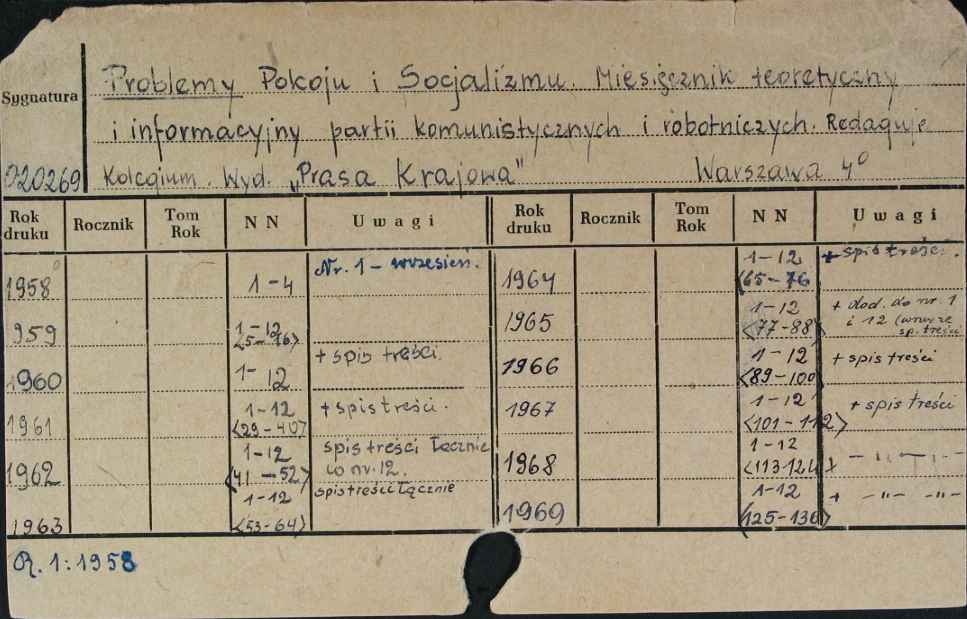 Problemy Pokoju i Socjalizmu. Miesięcznik teoretyczny
Sygnatura
i informacyjny partii komunistycznych i robotniczych. Redaguje
020269 Kolegium. Wyd. „Prasa Krajowa" Warszawa 4°
Rok druku Rocznik Tom Rok N N Uwagi Rok druku Rocznik Tom Rok N N Uwagi
1958 1-4 Nr. 1 - wrzesień.
959 1-12 <5-16>
1960 1-12 + spis treści.
1961 1-12 <29-40> + spis treści.
1962 1-12 <41-52> spis treści łącznie co nr. 12.
1963 1-12 <53-64> spis treści łącznie
1964 1-12 <65-76 + spis treści.
1965 1-12 <77-88> + dod. do nr. 1 i 12 sp. treści
1966 1-12 <89-100> + spis treści
1967 1-12 <101-112> + spis treści
1968 1-12 <113-124 + -"- -"-
1969 1-12 <125-136> + -"- -"-
R. 1:1958